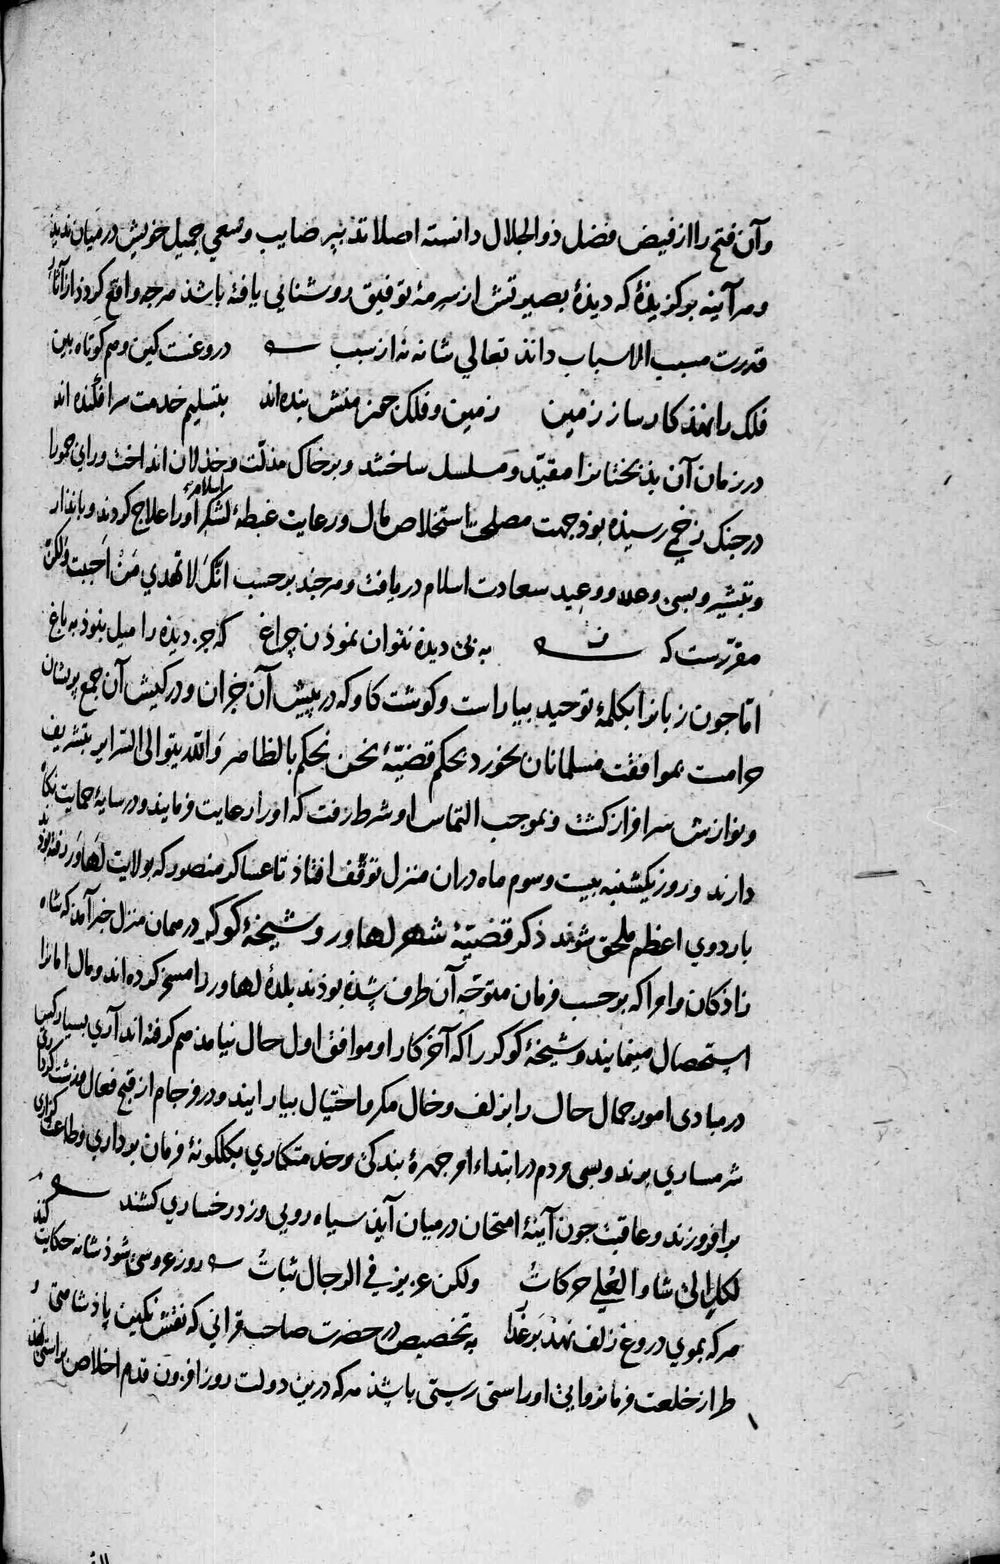 وآن فتح را از فیض فضل ذو الجلال دانسته اصلا تذبیر صایب وسعی جمیل خویش در میان ندید
وهر آینه بر کزیدهٔ که دیذهٔ بصیرتش از سرمهٔ توفیق روشنایی یافهٔ باشذ هرچه واقع کردذ از آثار
قدرت مسبب الاسباب داند تعالی شانه نه از سبب دروغست کین وهم کوتاه بین
فلک را نهذ کار ساز زمین زمین و فلک جمز منش بنده اند بتسلیم خدمت سر افکنده اند
در زمان آن بذبختانرا مقیّد و مسلسل ساختند و بر خاک مذلّت وخذلان انداخت و رای جمورا
در جنک زخمی رسیذه بوذ جهت مصلحت استخلاص مال و رعایت غبطهٔ لشکر اسلام اورا علاج کردند و بانذار
وتبشیر وبسی وعد و وعید سعادت اسلام دریافت و هرچند بر حسب انّک لا تهدي من احببت ولکن
مقرّرست که به بی دیده نتوان نموذن چراغ که جز دیذه را میل نبوذ به باغ
امّا چون زبانرا بکلمهٔ توحید بیاراست و کوشت کاو که در پیش آن خران و در کیش آن جمع پریشان
حرامست بموافقت مسلمانان بخورد بحکم قضیّهٔ نحن نحکم بالظاهر والله یتوالی السرایر بتشریف
ونوازش سرافراز کشت و بموجب التماس او شرط رفت که او را رعایت فرمایند و در سایهٔ حمایت نکاه
دارند و روز یکشنبه بیست وسوم ماه دران منزل توقّف افتاذ تا عساکر منصور که بولایت لهاور رفته بودند
باردوی اعظم ملحق شوند ذکر قضیّهٔ شهر لهاور و شیخهٔ کوکر در همان منزل خبر آمذ که شاه
زاذکان وامرا که بر حسب فرمان متوجّه آن طرف شذه بوذند بلدهٔ لهاور را مسخر کرده اند و مال امانرا
استحصال مینمایند و شیخهٔ کوکر را که آخر کار او موافق اول حال نیامذ هم کرفته اند آری بسیار کس
در مبادی امور جمال حال را بزلف و خال مکر و احتیال بیارایند و در فرجام از قبح فعال
شرمساري برند وبسی مردم در ابتداء امر چهرهٔ بندکی وخدمتکاري بکلکونهٔ فرمان برداري و طاعت کزاری
بر افروزند و عاقبت چون آینهٔ امتحان در میان آیذ سیاه رویی و زرد رخساري کشند
لکلٍ الی شاو العُلي حرکاتُ ولکن عزیز في الرجال ثباتُ روز عروسی شوذ شانه حکایت کند
هر که بموی دروغ زلف نهذ بر عذار به تخصیص در حضرت صاحب قرانی که نقش نکین پاذشاهی و
طراز خلعت فرمانروایی او راستی رستی باشذ هر که درین دولت روز افزون قدم اخلاص براستی نهد